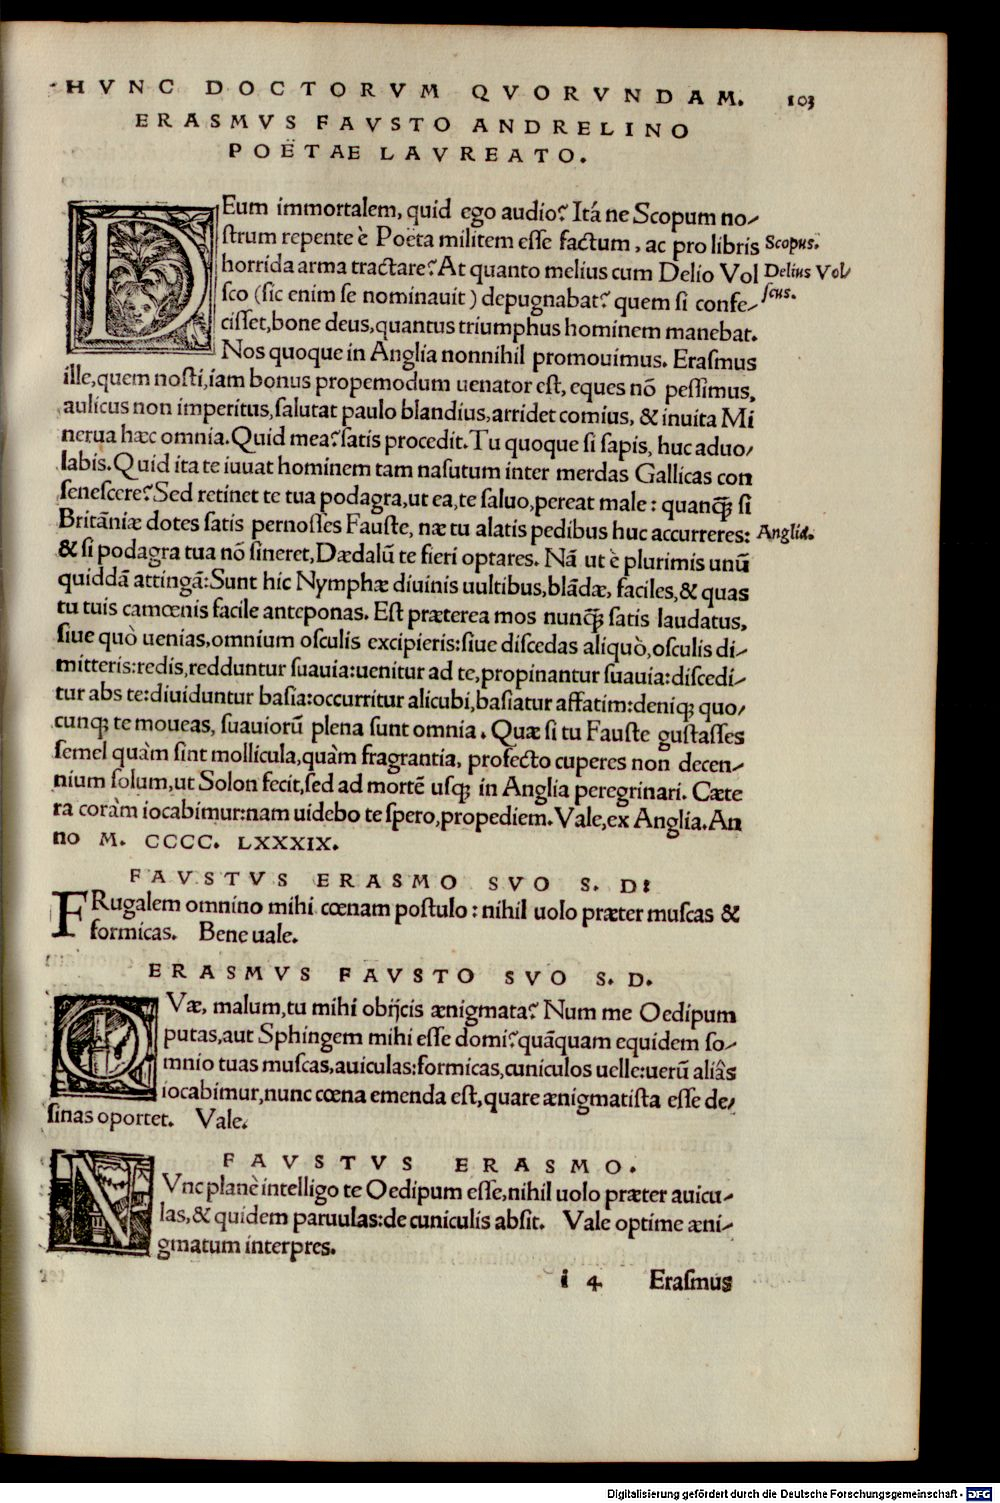 HVNC DOCTORVM QVORVNDAM. 103
ERASMVS FAVSTO ANDRELINO
POËTAE LAVREATO.
DEum immortalem, quid ego audio? Itá ne Scopum no-
strum repente è Poëta militem esse factum, ac pro libris Scopus.
horrida arma tractare? At quanto melius cum Delio Vol Delius Vol
sco (sic enim se nominauit) depugnabat? quem si confe- scus.
cisset, bone deus, quantus triumphus hominem manebat.
Nos quoque in Anglia nonnihil promouimus. Erasmus
ille, quem nosti, iam bonus propemodum uenator est, eques nō pessimus,
aulicus non imperitus, salutat paulo blandius, arridet comius, & inuita Mi
nerua hæc omnia. Quid mea? satis procedit. Tu quoque si sapis, huc aduo-
labis. Quid ita te iuuat hominem tam nasutum inter merdas Gallicas con
senescere? Sed retinet te tua podagra, ut ea, te saluo, pereat male: quanꝙ̃ si
Britāniæ dotes satis pernosses Fauste, næ tu alatis pedibus huc accurreres: Anglia.
& si podagra tua nō sineret, Dædalū te fieri optares. Nā ut è plurimis unū
quiddā attingā: Sunt hic Nymphæ diuinis uultibus, blādæ, faciles, & quas
tu tuis camœnis facile anteponas. Est præterea mos nunꝙ̃ satis laudatus,
siue quò uenias, omnium osculis excipieris: siue discedas aliquò, osculis di-
mitteris: redis, redduntur suauia: uenitur ad te, propinantur suauia: discedi-
tur abs te: diuiduntur basia: occurritur alicubi, basiatur affatim: deniqꝫ quo-
cunqꝫ te moueas, suauiorū plena sunt omnia. Quæ si tu Fauste gustasses
semel quàm sint mollicula, quàm fragrantia, profecto cuperes non decen-
nium solum, ut Solon fecit, sed ad mortē usqꝫ in Anglia peregrinari. Cæte
ra coràm iocabimur: nam uidebo te spero, propediem. Vale, ex Anglia. An
no M. CCCC. LXXXIX.
FAVSTVS ERASMO SVO S. D:
FRugalem omnino mihi cœnam postulo: nihil uolo præter muscas &
formicas. Bene uale.
ERASMVS FAVSTO SVO S. D.
QVæ, malum, tu mihi obijcis ænigmata? Num me Oedipum
putas, aut Sphingem mihi esse domi? quāquam equidem so-
mnio tuas muscas, auiculas: formicas, cuniculos uelle: uerū aliâs
iocabimur, nunc cœna emenda est, quare ænigmatista esse de-
sinas oportet. Vale.
FAVSTVS ERASMO.
NVnc planè intelligo te Oedipum esse, nihil uolo præter auicu-
las, & quidem paruulas: de cuniculis absit. Vale optime æni-
gmatum interpres.
i 4 Erasmus
Digitalisierung gefördert durch die Deutsche Forschungsgemeinschaft - DFG